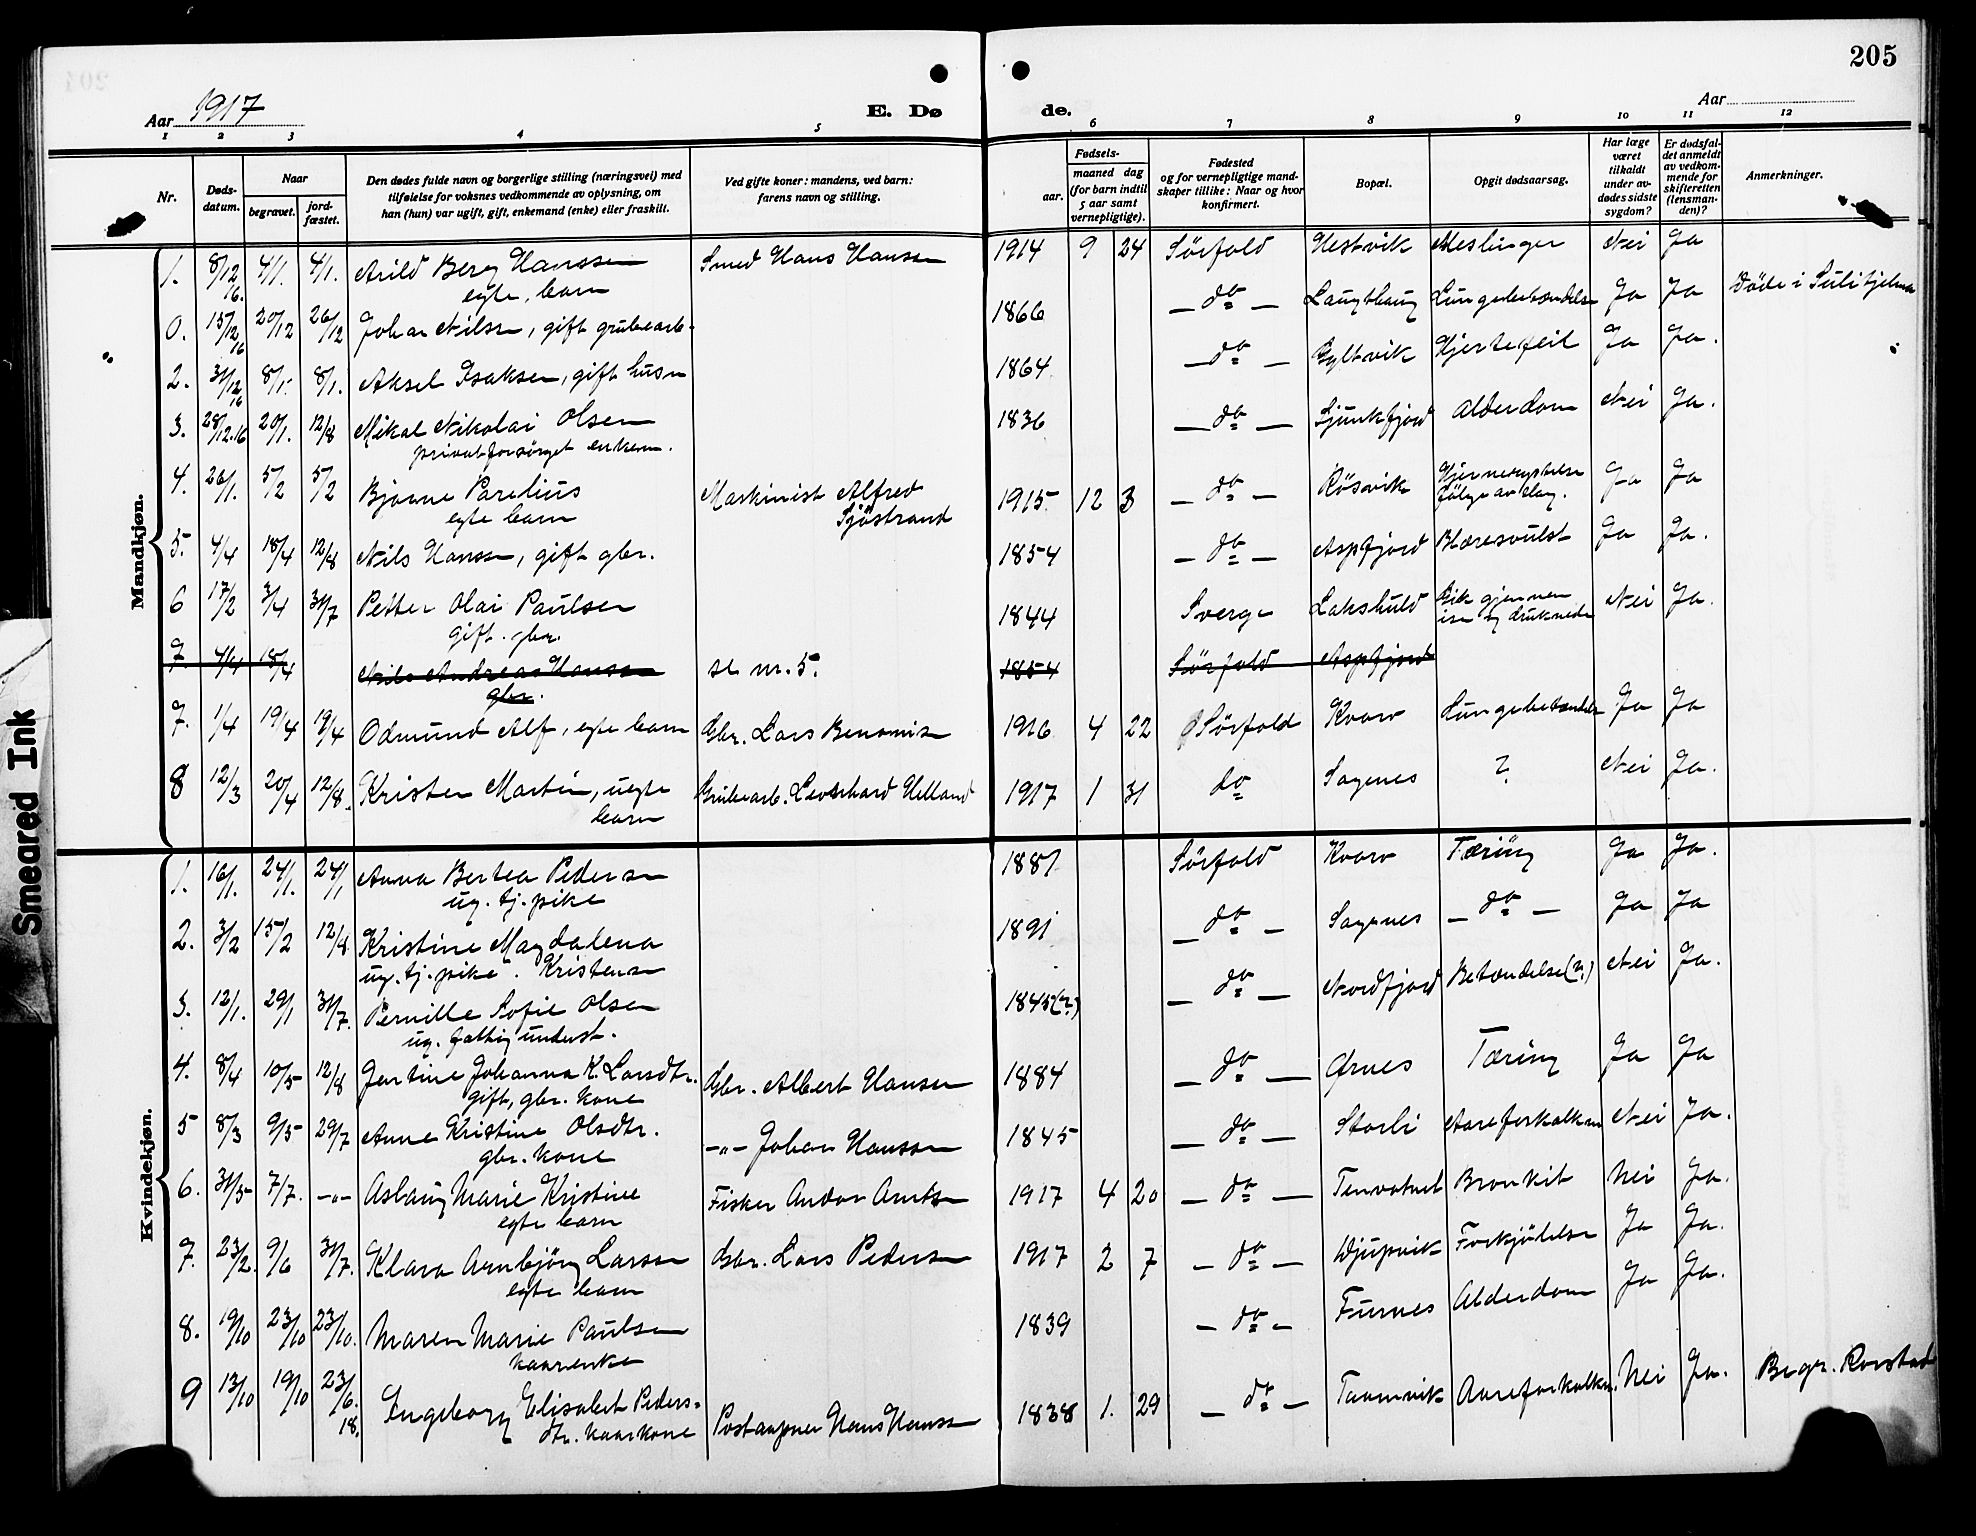 205
Aar 1917
E. Dø
de.
Aar
1 2 3 4 5 6 7 8 9 10 11 12
Nr.
Døds-
datum.
Naar
begravet.
jord-
fæstet.
Den dødes fulde navn og borgerlige stilling (næringsvei) med
tilføielse for voksnes vedkommende av oplysning, om
han (hun) var ugift, gift, enkemand (enke) eller fraskilt.
Ved gifte koner: mandens, ved barn:
farens navn og stilling.
Fødsels-
aar.
maaned dag
(for barn indtil
5 aar samt
vernepligtige).
Fødested
og for vernepligtige mand-
skaper tillike: Naar og hvor
konfirmert.
Bopæl.
Opgit dødsaarsag.
Har læge
været
tilkaldt
under av-
dødes sidste
sygdom?
Er dødsfal-
det anmeldt
av vedkom-
mende for
skifteretten
(lensman-
den)?
Anmerkninger.
Mandkjøn.
1. 8/12 16. 4/1. 4/1. Arild Berg Hanssen Smed Hans Hansen 1914 9 24 Sørfold Hestvik Meslinger Nei Ja
egte, barn
0. 15/12 16 20/12 26/12 Johan Nilssen, gift grubearb. 1866 – do – Laugthaug Lungebetændelse Ja Ja Døde i Sulitjelma
2. 31/12 16 8/1. 8/1. Aksel Isaksen, gift husm 1864 – do – Gyltvik Hjertefeil Ja Ja.
3. 28/12.16 20/1. 12/8 Mikal Nikolai Olsen 1836 – do – Ljunkfjord Alderdom Nei Ja.
privatforsørget enkem.
4. 26/1. 5/2 5/2 Bjarne Parelius Maskinist Alfred Sjøstrand 1915 12 3 – do – Røsvik Hjernerystelse følge av slag. Ja Ja
egte barn
5. 4/4 18/4 12/8 Nils Hanssen, gift gbr. 1854 – do – Aspfjord Blæresvulst Ja Ja.
6 17/2 3/4 31/7 Petter Olai Paulsen 1844 Sverge Lakshuld Gik gjennem isen og druknede Nei Ja.
gift. gbr.
7. 4/4 18/4 Nils Andreas Hanssen se nr. 5. 1854 Sørfold Aspfjord
gbr.
7. 1/4 19/4 19/4 Odmund Alf, egte barn Gbr. Lars Benomisen 1916 4 22 Sørfold Kvarv Lungebetændelse Ja Ja
8 12/3 20/4 12/8. Kristen Martin, uegte Grubearb. Leonhard Helland 1917 1 31 do Sagnes ? Nei Ja.
barn
Kvindekjøn.
1. 16/1. 24/1. 24/1 Anna Bertea Pedersen 1887 Sørfold Kvarv Tæring Ja Ja.
ug. tj. pike
2. 3/2 15/2 12/8 Kristine Magdalena 1891 – do – Sagnes – do – Ja Ja
ug. tj. pike. Kristensen
3. 12/1. 29/1 31/7. Pernille Sofie Olsen 1845(?) – do – Nordfjord Betændelse(?) Nei Ja.
ug. fattigunderst.
4. 8/4 10/5 12/8 Jentine Johanna K. Larsdtr. Gbr. Albert Hansen 1884 – do – Ørnes Tæring Ja Ja
gift, gbr. kone
5 8/3 9/5 29/7 Anne Kristine Olsdtr. –"– Johan Hanssen 1845 – do – Storli Aareforkalkn Nei Ja.
gbr. kone
6. 31/5 7/7. –"– Aslaug Marie Kristine Fisker Andor Arntsen 1917 4 20 – do – Tennvatnet Bronkit Nei Ja.
egte barn
7. 23/2. 9/6 31/7. Klara Arnbjørg Larsen Gbr. Lars Pedersen 1917 2 7 – do – Djupvik Forkjølelse Ja Ja.
egte barn
8. 19/10 23/10 23/10. Maren Marie Paulsen 1839 – do – Furnes Alderdom Ja Ja.
kaarenke
9 13/10 19/10 23/6. 18. Ingeborg Elisabet Peders= Postaapner Hans Hanssen 1838 1. 29 – do – Taamvik Aareforkalkn. Nei Ja. Begr. Rorstad
dtr. kaarkone
Smeared Ink